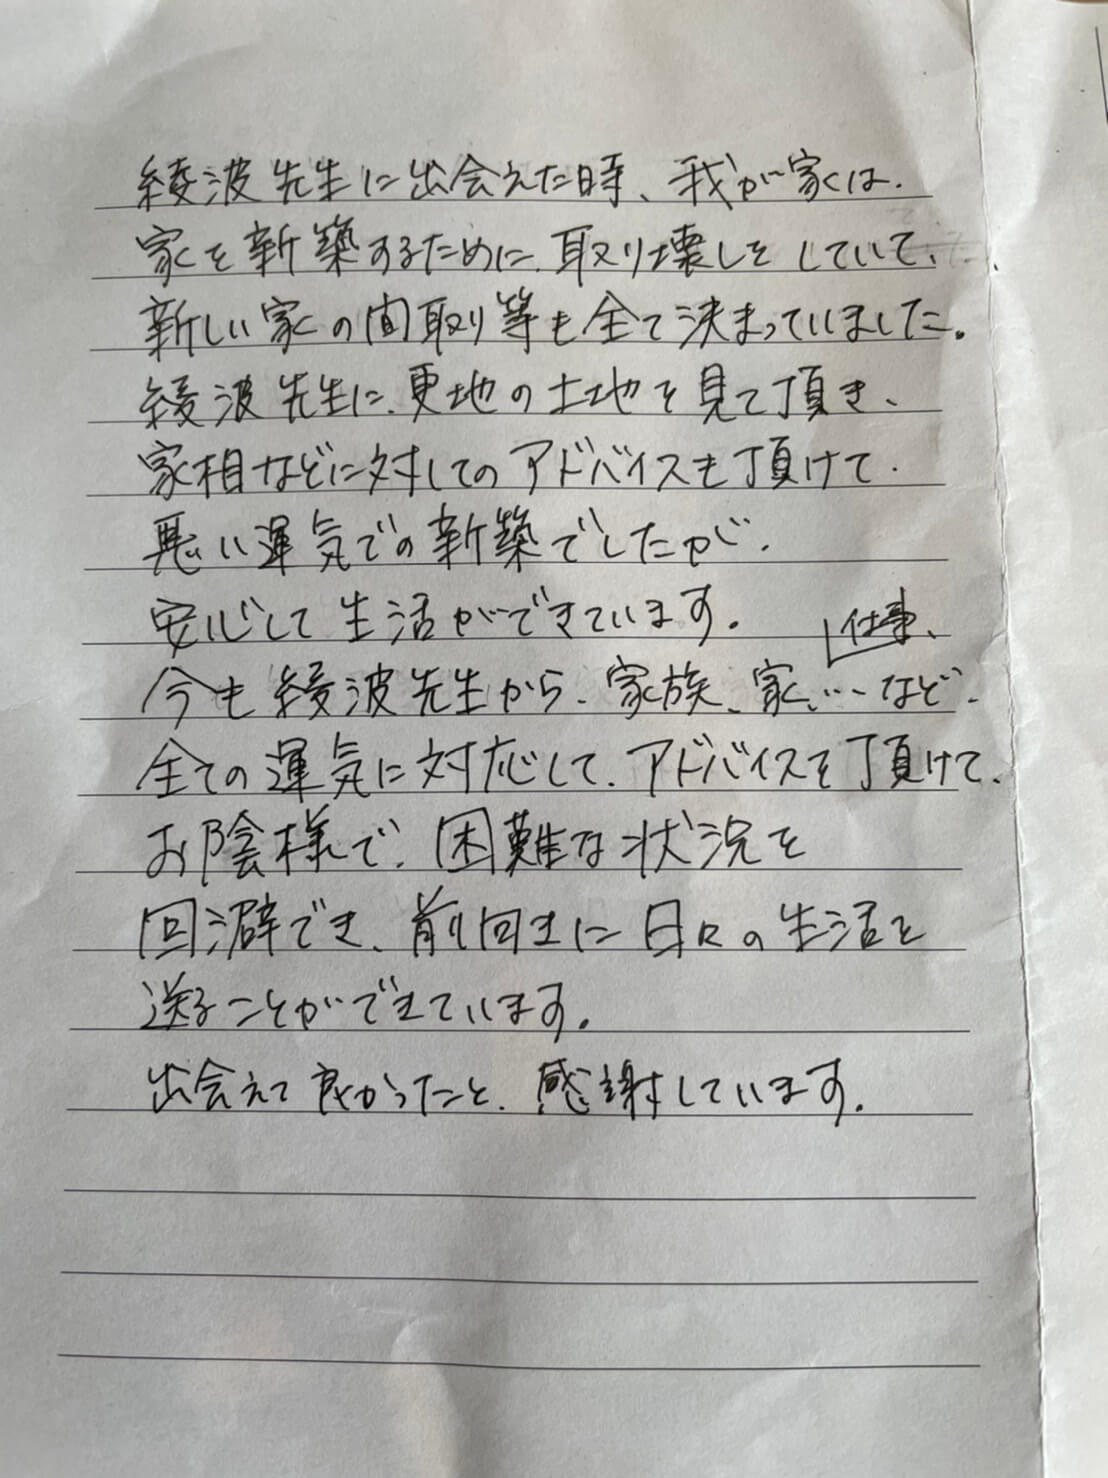 綾波先生に出会えた時、我が家は、
家を新築するために、取り壊しをしていて、
新しい家の間取り等も全て決まっていました。
綾波先生に、更地の土地を見て頂き、
家相などに対してのアドバイスも頂けて、
悪い運気での新築でしたが、
安心して生活ができています。
今も綾波先生から、家族、家、仕事、…など、
全ての運気に対応して、アドバイスを頂けて、
お陰様で、困難な状況を
回避でき、前向きに日々の生活を
送ることができています。
出会えて良かったと、感謝しています。